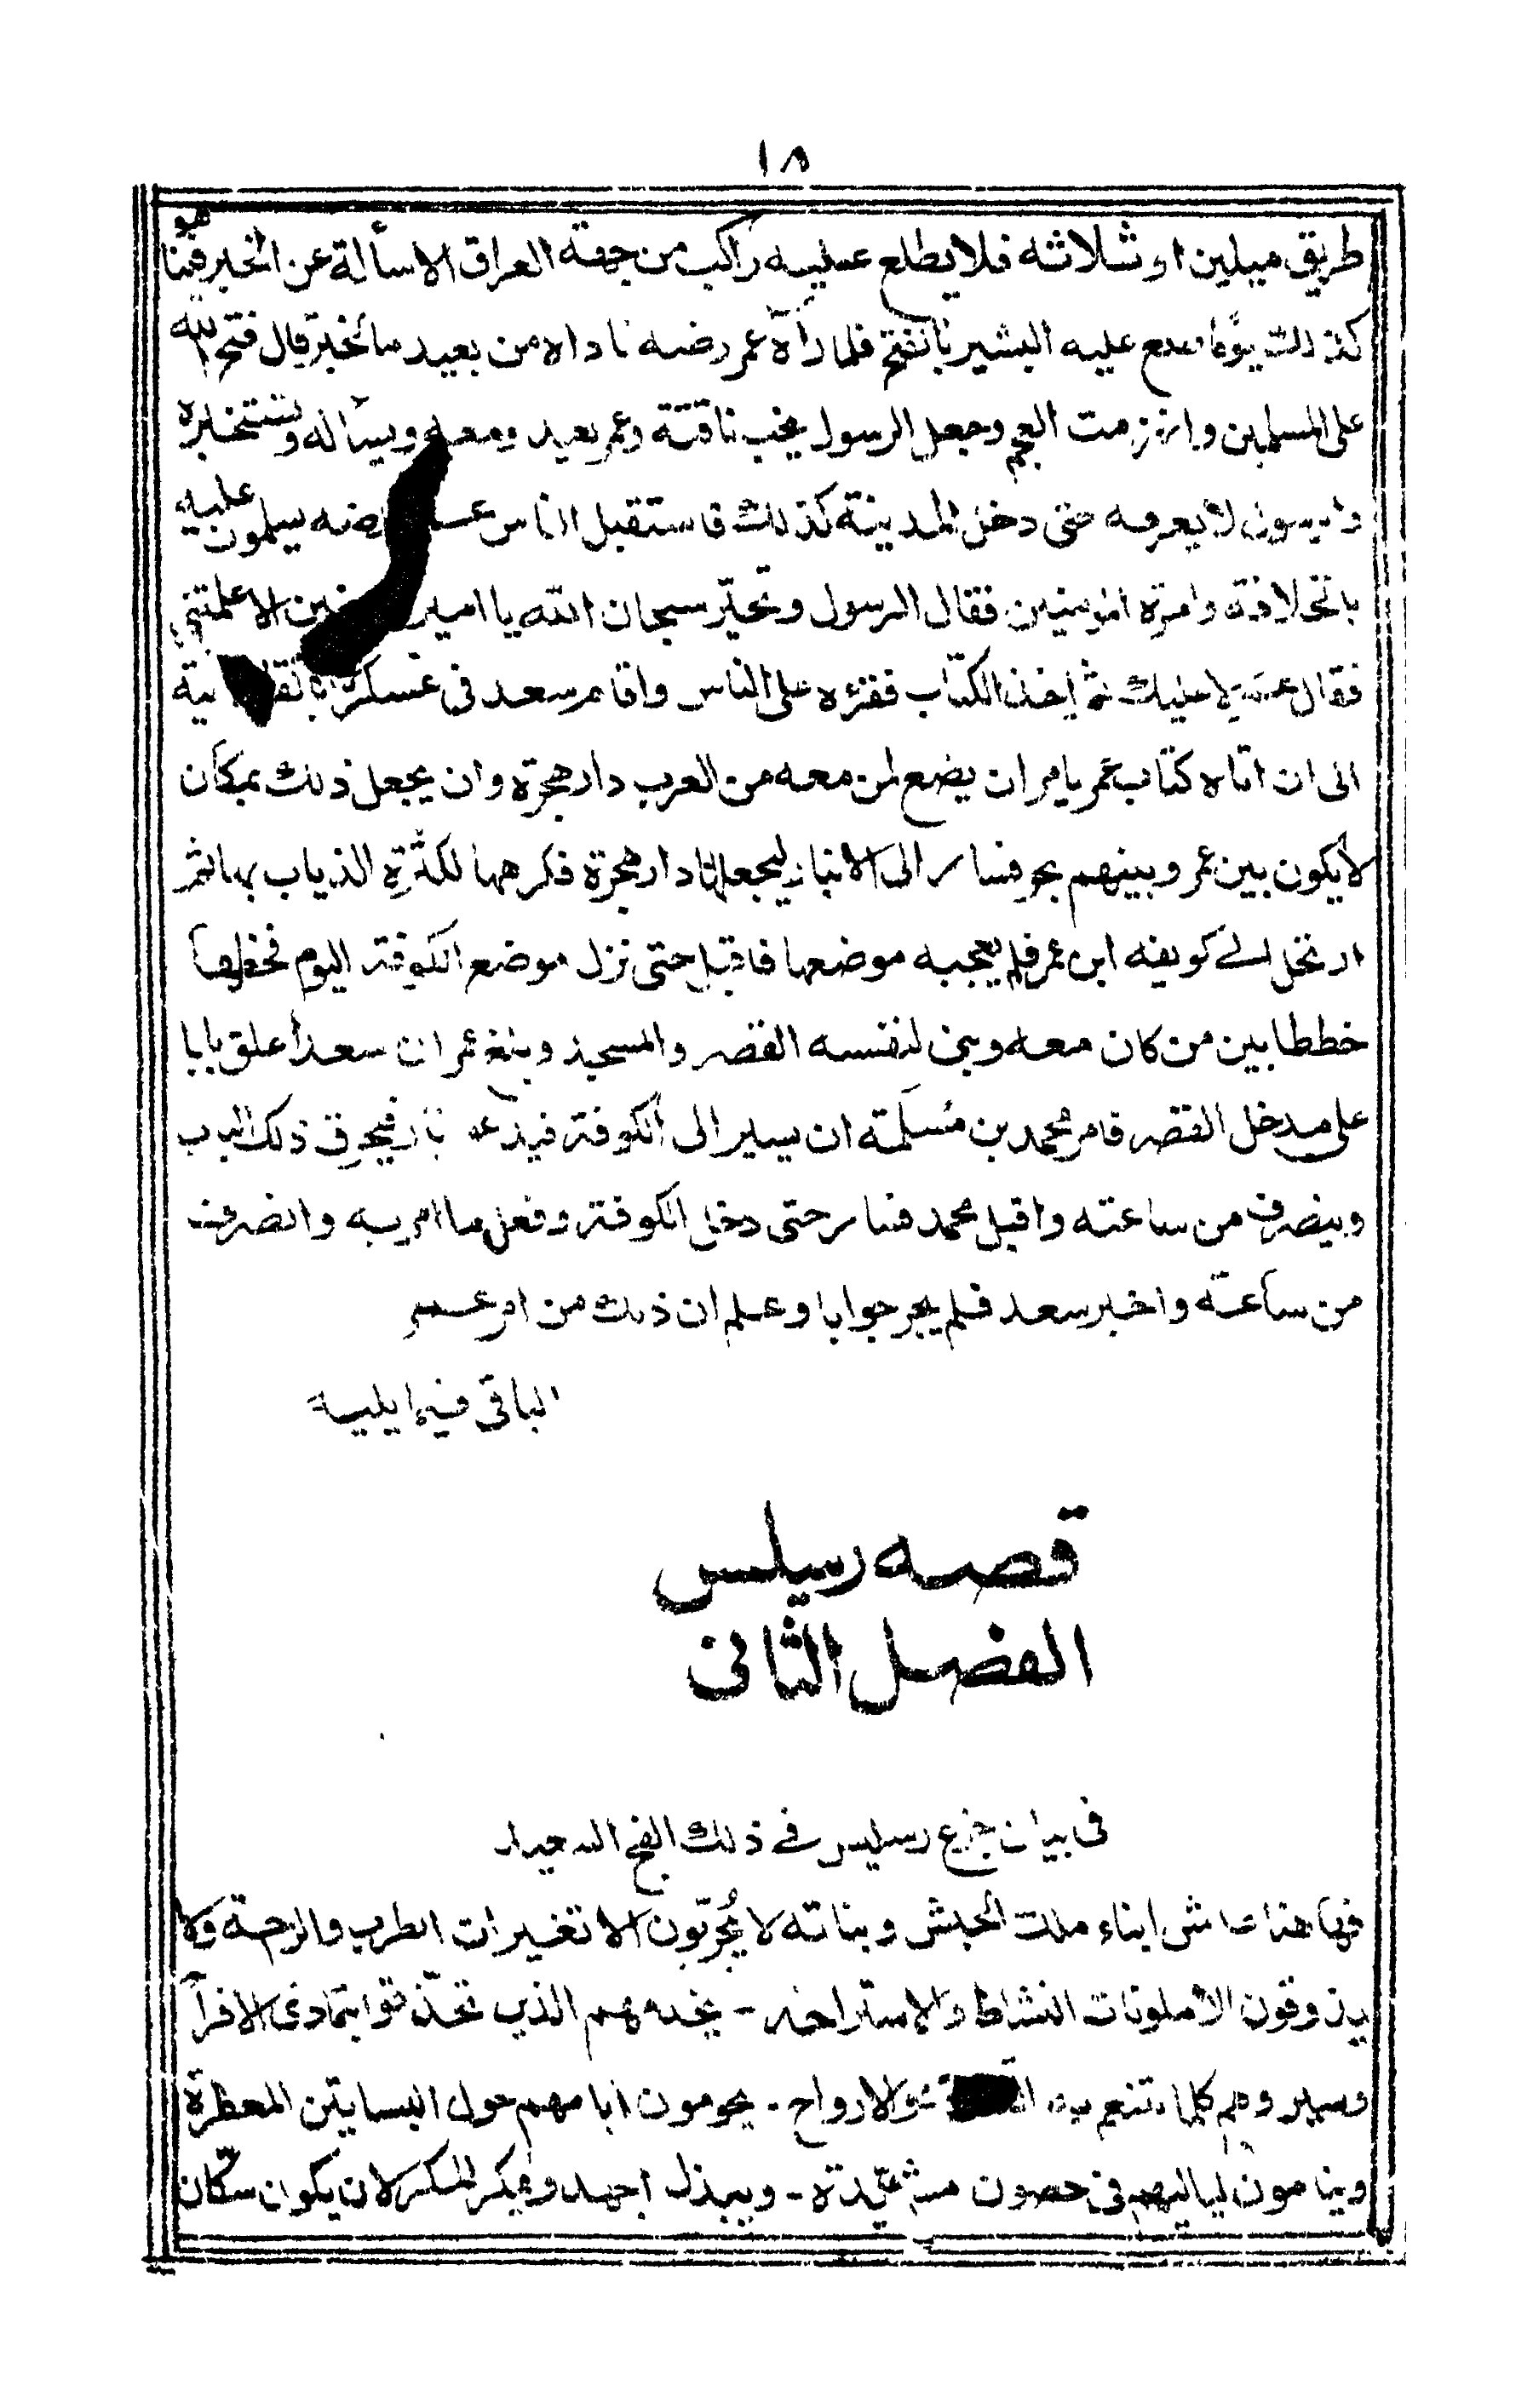 ١٨
طريق ميلين او ثلاثه فلا يطلع عليه راكب من جهة العراق الا سأله عن الخبر فبينا هو
كذلك يوما طلع عليه البشير بالفتح فلما رآه عمر رضه ناداه من بعيد ما الخبر قال فتح الله
على المسلمين وانهزمت العجم وجعل الرسول يخب ناقتة وعمر يعيد ومعه ويسأله ويستخبره
والرسول لا يعرفه حتى دخل المدينة كذلك فاستقبل الناس رضه يسلمون عليه
بالخلافة وامرة المومنين فقال الرسول وتحيّر سبحان الله يا امير الا اعلمتني
فقال عمر لا عليك ثم اخذ الكتاب فقرءه على الناس واقام سعد فى عسكره
الى ان اتاه كتاب عمر يامر ان يضع لمن معه من العرب دار هجرة وان يجعل ذلك بمكان
لا يكون بين عمر وبينهم بحر فسار الى الانبار ليجعلها دار هجرة فكرهها لكثرة الذباب بها ثم
ارتحل الى كويفه ابن عمر فلم يعجبه موضعها فاقبل حتى نزل موضع الكوفة اليوم فخطها
خططا بين من كان معه وبنى لنفسه القصر والمسجد وبلغ عمر ان سعدا علق بابا
على مدخل القصر فامر محمد بن مُسلمة ان يسير الى الكوفة فيدعو بنار فيحرق ذلك الباب
وينصرف من ساعته واقبل محمد فسار حتى دخل الكوفة وفعل ما امر به وانصرف
من ساعته واخبر سعد فلم يحر جوابا وعلم ان ذلك من امر عمر
الباقى فيما يليه
قصه رسيلس
الفصل الثانى
فى بيان جزع رسيلس فى ذلك الفج السعيد
فهاهنا عاش ابناء ملك الحبش وبناته لا يُجرّبون الا تغيرات الطرب والرحة ولا
يذوقون الا ملونات النشاط والاستراحه - يخدمهم الذين تحذّقوا بتمادى الافرا
وهم كلما تتنعم به والارواح - يحومون ايامهم حول البساتين المعطرة
وينامون لياليهم فى حصون مشيّدة - ويبذل اجهد وفكر لان يكون سكّان